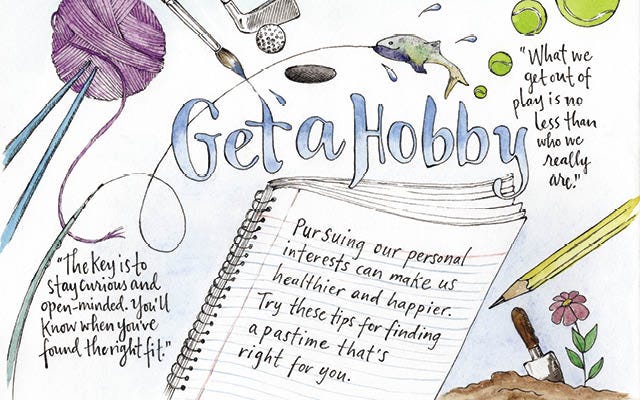 Get a Hobby
"What we
get out of
play is no
less than
who we
really
are."
Pursuing our personal
interests can make us
healthier and happier.
Try these tips for finding
a pastime that's
right for you.
"The key is to
stay curious and
open-minded. You'll
know when you've
found the right fit."